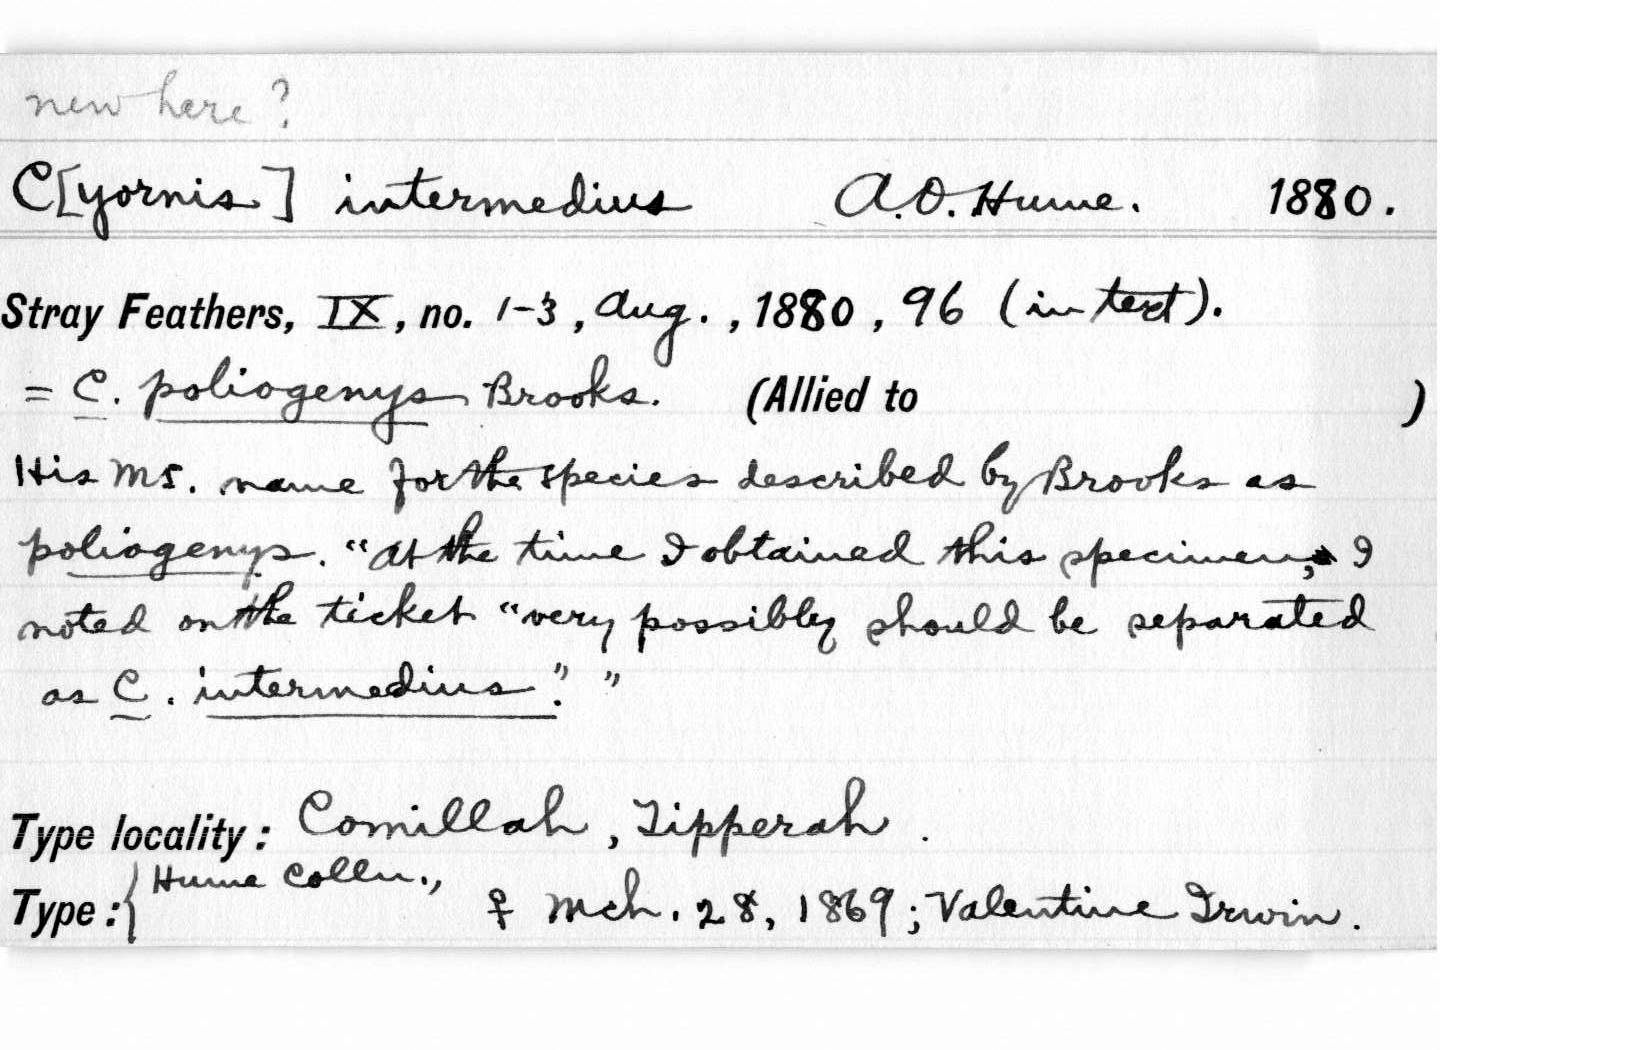 new here?
C[yornis] intermedius A.O. Hume. 1880.
Stray Feathers, IX, no. 1-3, Aug., 1880, 96 (in text).
= C. poliogenys Brooks. (Allied to )
His MS. name for the species described by Brooks as
poliogenys. "At the time I obtained this specimen, I
noted on the ticket "very possibly should be separated
as C. intermedius"."
Type locality: Comillah, Tipperah.
Type: { Hume Colln., ♀ Mch. 28, 1869; Valentine Irwin.